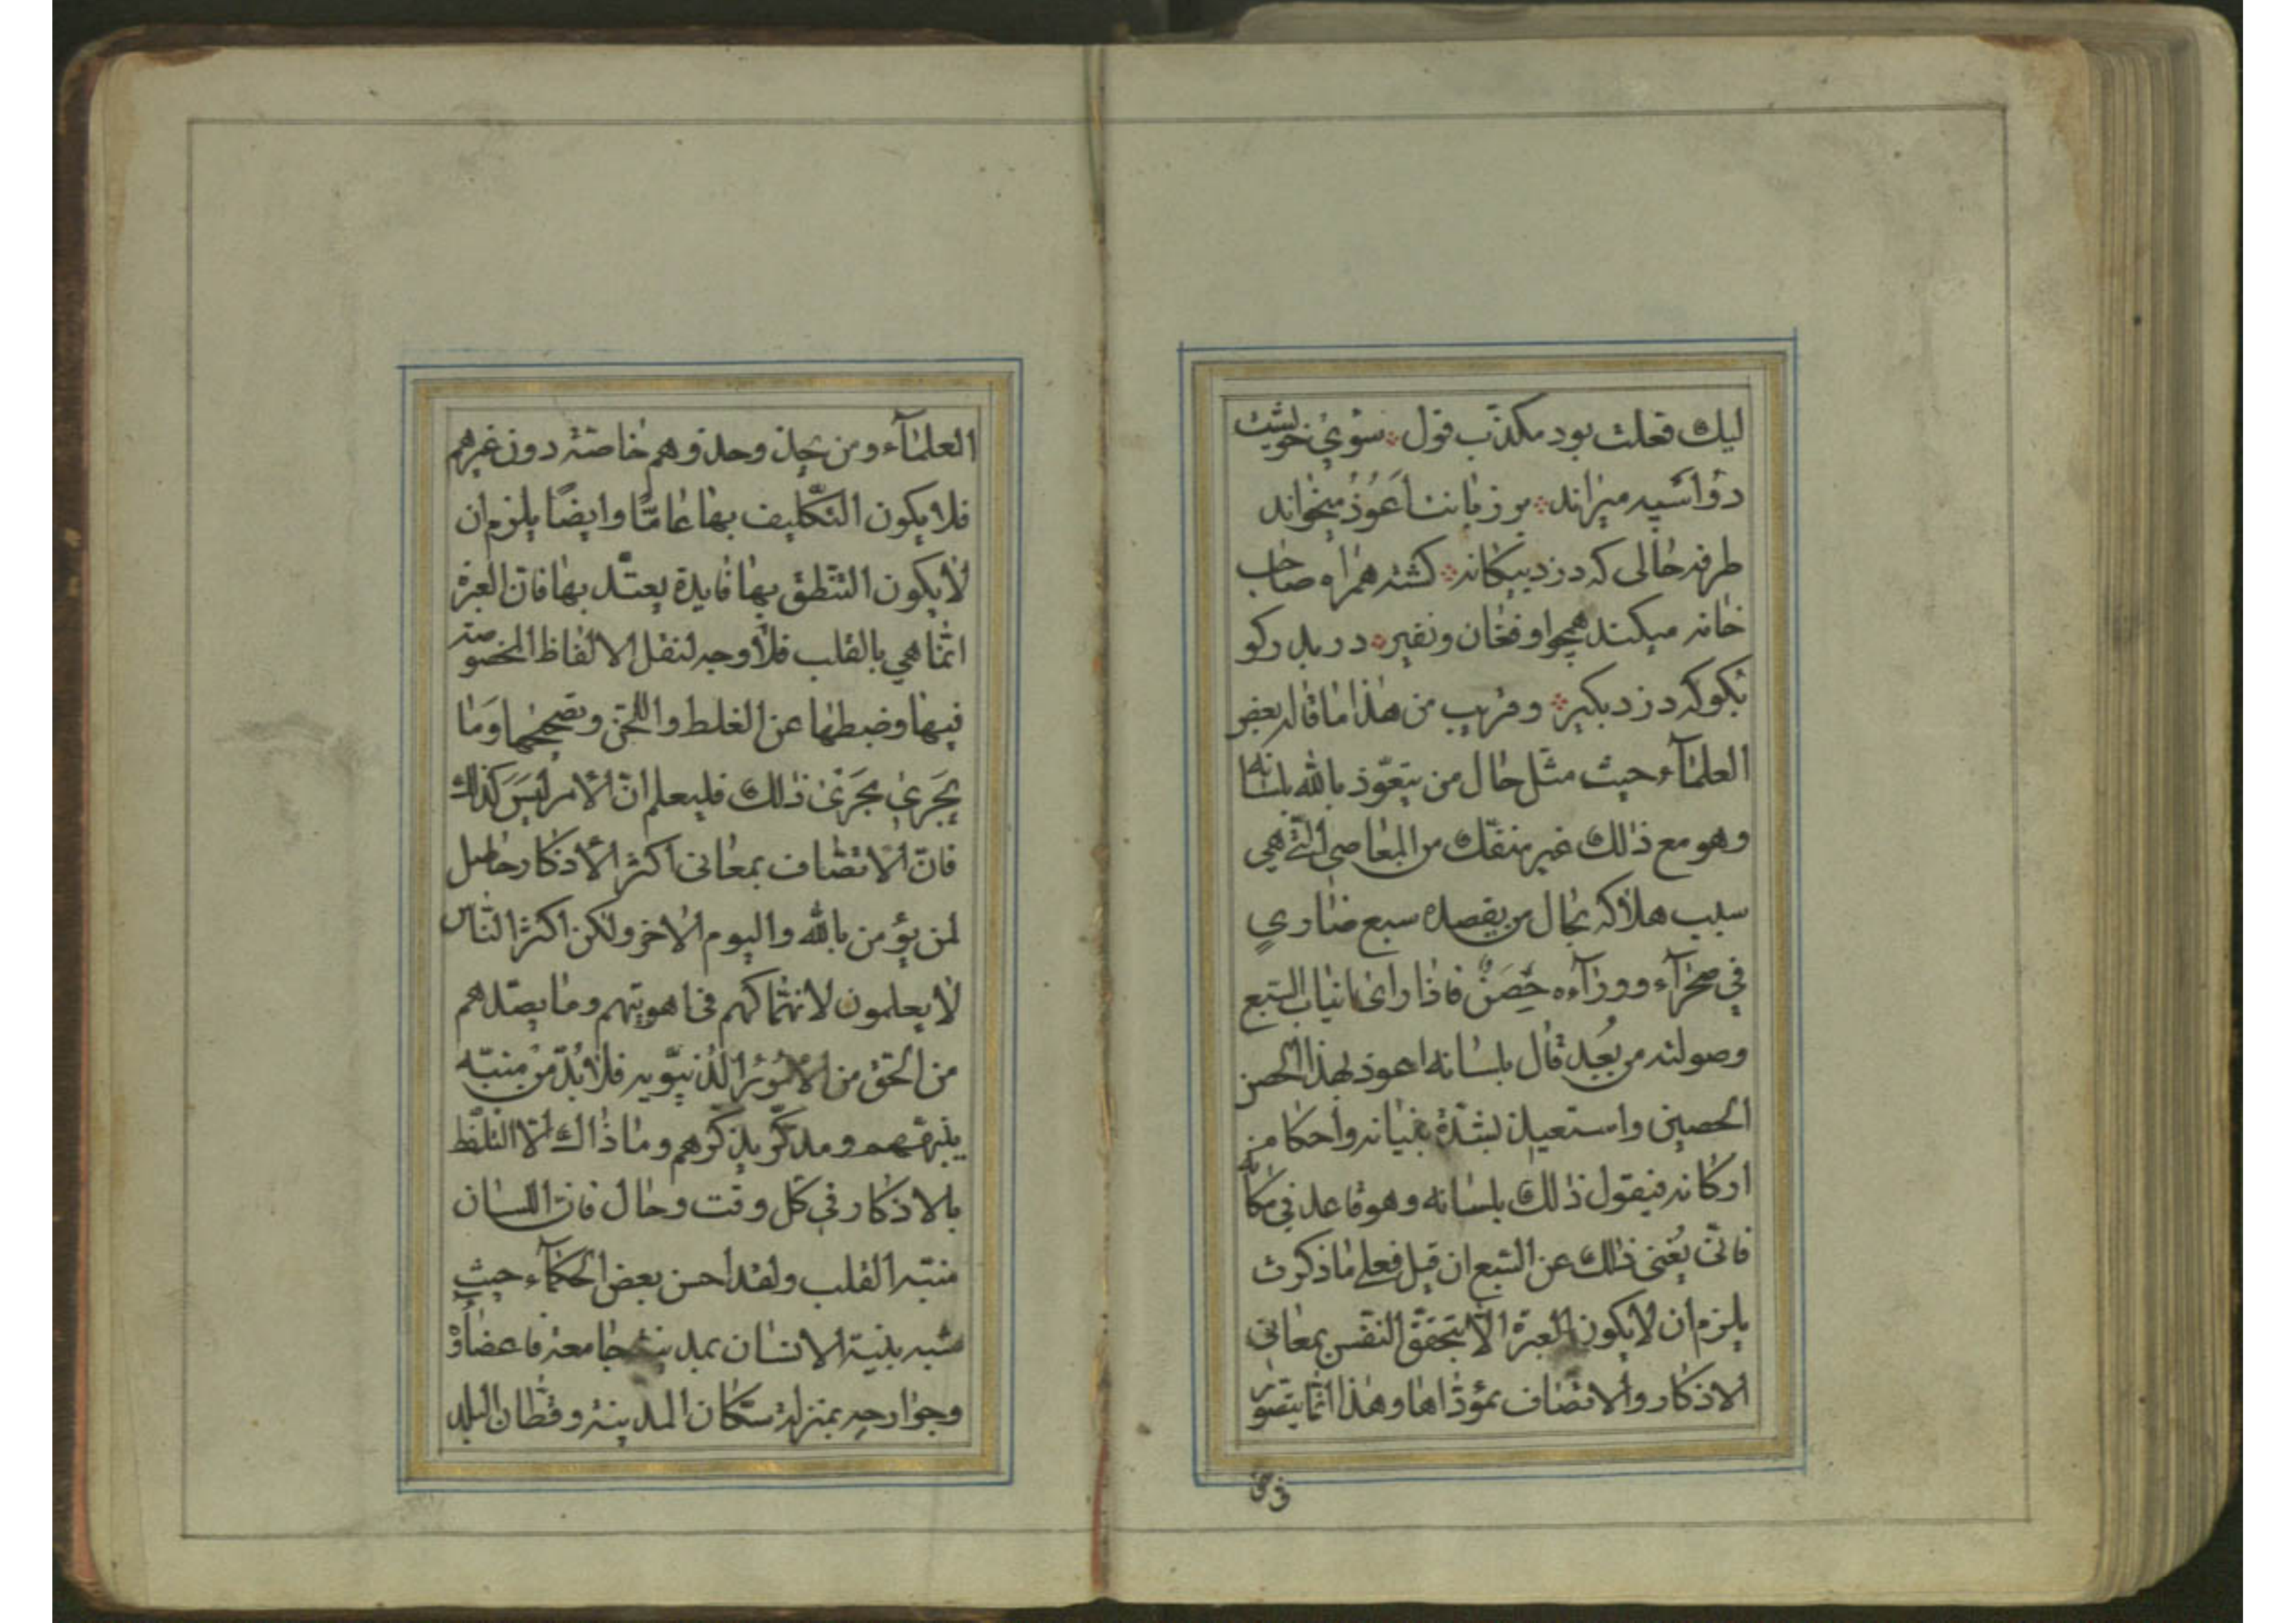 ليك فعلت بود مكذّب قول سوي خويشت
دو اسپه ميراند بر زبانت اعوذ ميخواند
طرفه حالى كه دزد بيكانه كشته همراه صاحب
خانه ميكند همچو او فغان ونفير در بدر كو
بكو كه دزد بكير وقريب من هذا ما قاله بعض
العلمآء حيث مثّل حال من يتعوّذ بالله بلسانه
وهو مع ذلك غير منفّك من المعاصى الّتى هي
سبب هلاكه بحال من يقصده سبع ضاري
في صحرآء وورآءه حصن فاذا راى انياب السّبع
وصولته من بعيد قال بلسانه اعوذ بهذا الحصن
الحصين واستعيذ بشدّة بنيانه واحكام
اركانه فيقول ذلك بلسانه وهو قاعد في مكانه
فانّى يغنى ذلك عن السّبع ان قيل فعلى ما ذكرت
يلزم ان لا يكون العبرة الّا بتحقّق النّفس بمعانى
الاذكار والاتصاف بمؤدّاها وهذا انّما يتصوّر
فى حق
العلمآء ومن يحذ وحذوهم خاصّة دون غيرهم
فلا يكون التكليف بها عامّا وايضًا يلزم ان
لا يكون التنطق بها فايدة يعتدّ بها فان العبرة
انّما هي بالقلب فلا وجه لنقل الالفاظ المخصوصة
فيها وضبطها عن الغلط واللحن وتصحيحها وما
يجري مجرى ذلك فليعلم انّ الامر ليس كذلك
فانّ الاتصاف بمعانى اكثر الاذكار حاصل
لمن يؤمن بالله واليوم الاخر ولكن اكثر النّاس
لا يعلمون لانهماكهم فى اهويتهم وما يصدّهم
من الحق من الامور الدّنيّويه فلا بدّ من منبّه
ينبههم ومذكّر يذكّرهم وما ذاك الّا التلفّظ
بالاذكار في كل وقت وحال فان اللسان
منبّه القلب ولقد احسن بعض الحكمآء حيث
شبه بنية الانسان بمدينة جامعة فاعضاؤه
وجوارحه بمنزلة سكّان المدينة وقطّان البلد